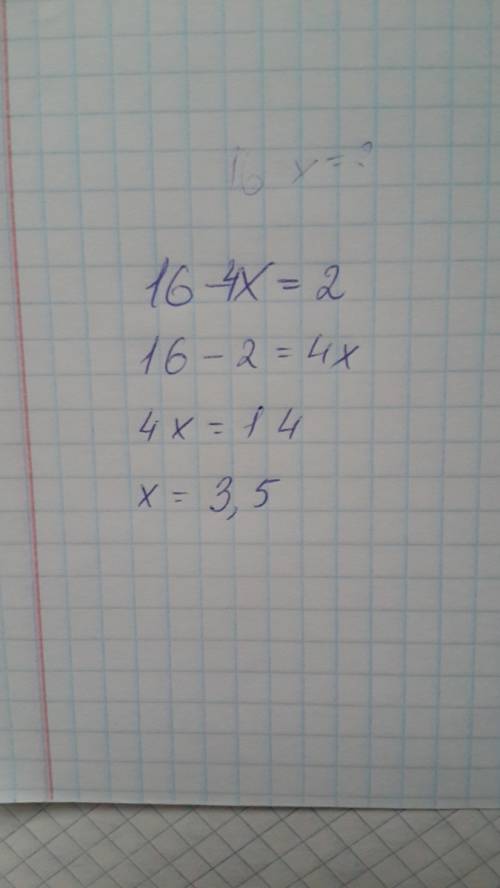 16 x = ?
16 - 4x = 2
16 - 2 = 4x
4x = 14
x = 3,5